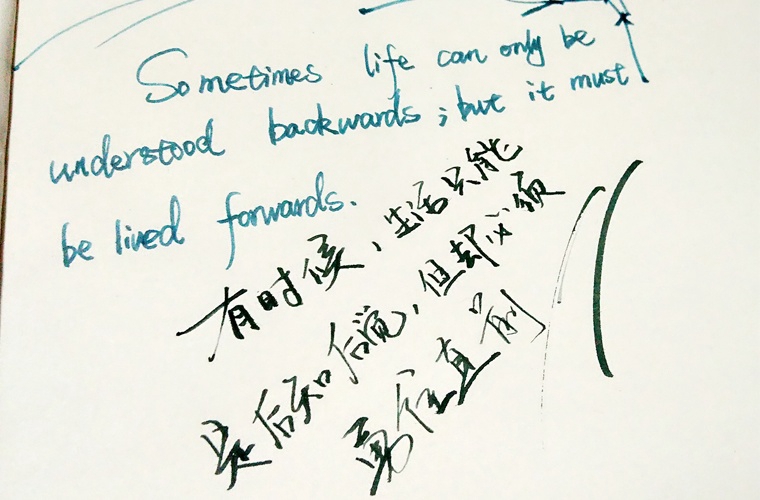 Sometimes life can only be
understood backwards; but it must
be lived forwards.
有时候，生活只能
是后知后觉，但却必须
勇往直前